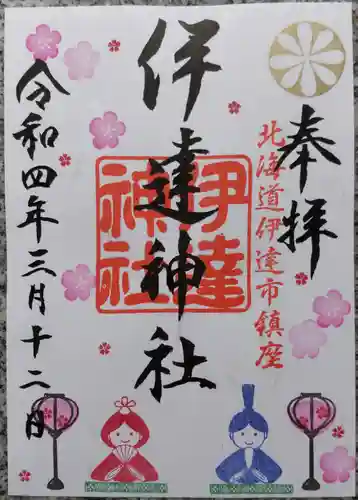 奉拝
北海道伊達市鎮座
伊達神社
伊達
神社
令和四年三月十二日